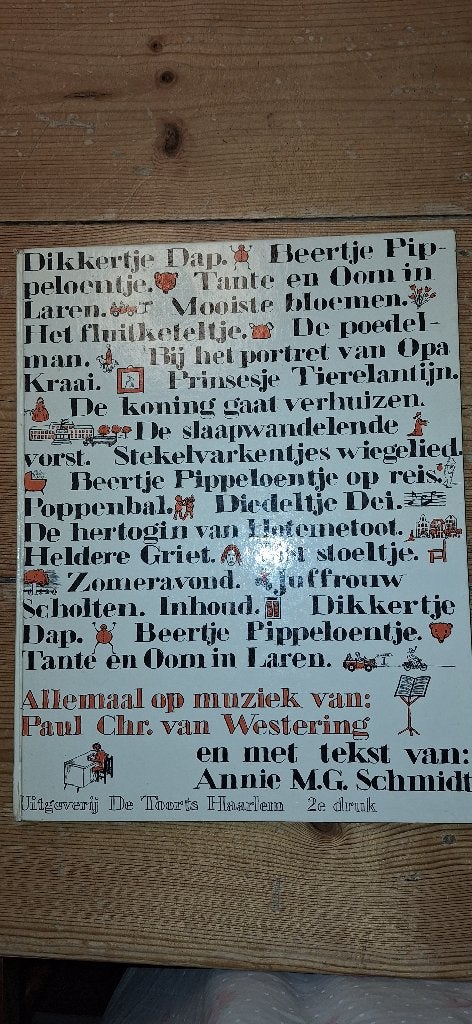 Dikkertje Dap. Beertje Pip-
peloentje. Tante en Oom in
Laren. Mooiste bloemen.
Het fluitketeltje. De poedel-
man. Bij het portret van Opa
Kraai. Prinsesje Tierelantijn.
De koning gaat verhuizen.
De slaapwandelende
vorst. Stekelvarkentjes wiegelied.
Beertje Pippeloentje op reis.
Poppenbal. Diedeltje Dei.
De hertogin van Hotemetoot.
Heldere Griet. stoeltje.
Zomeravond. Juffrouw
Scholten. Inhoud. Dikkertje
Dap. Beertje Pippeloentje.
Tante en Oom in Laren.
Allemaal op muziek van:
Paul Chr. van Westering
en met tekst van:
Annie M.G. Schmidt
Uitgeverij De Toorts Haarlem 2e druk